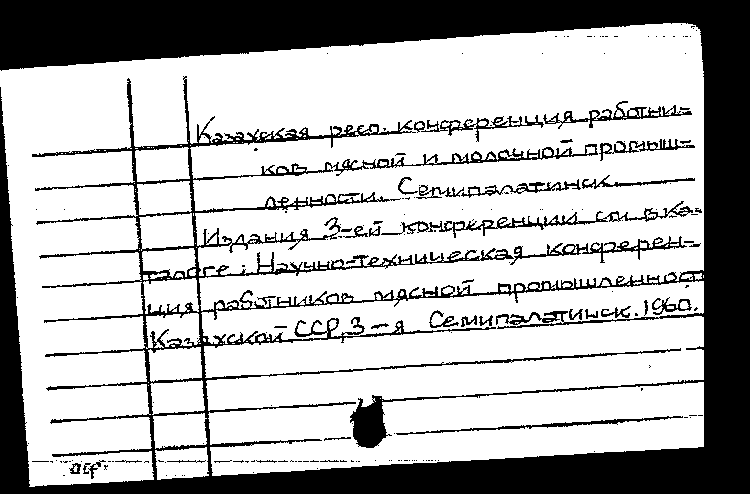 Казахская респ. конференция работни-
ков мясной и молочной промыш-
ленности. Семипалатинск.
Издания 3-ей конференции см. в ка-
талоге: Научно-техническая конферен-
ция работников мясной промышленност
Казахской ССР, 3-я. Семипалатинск. 1960.